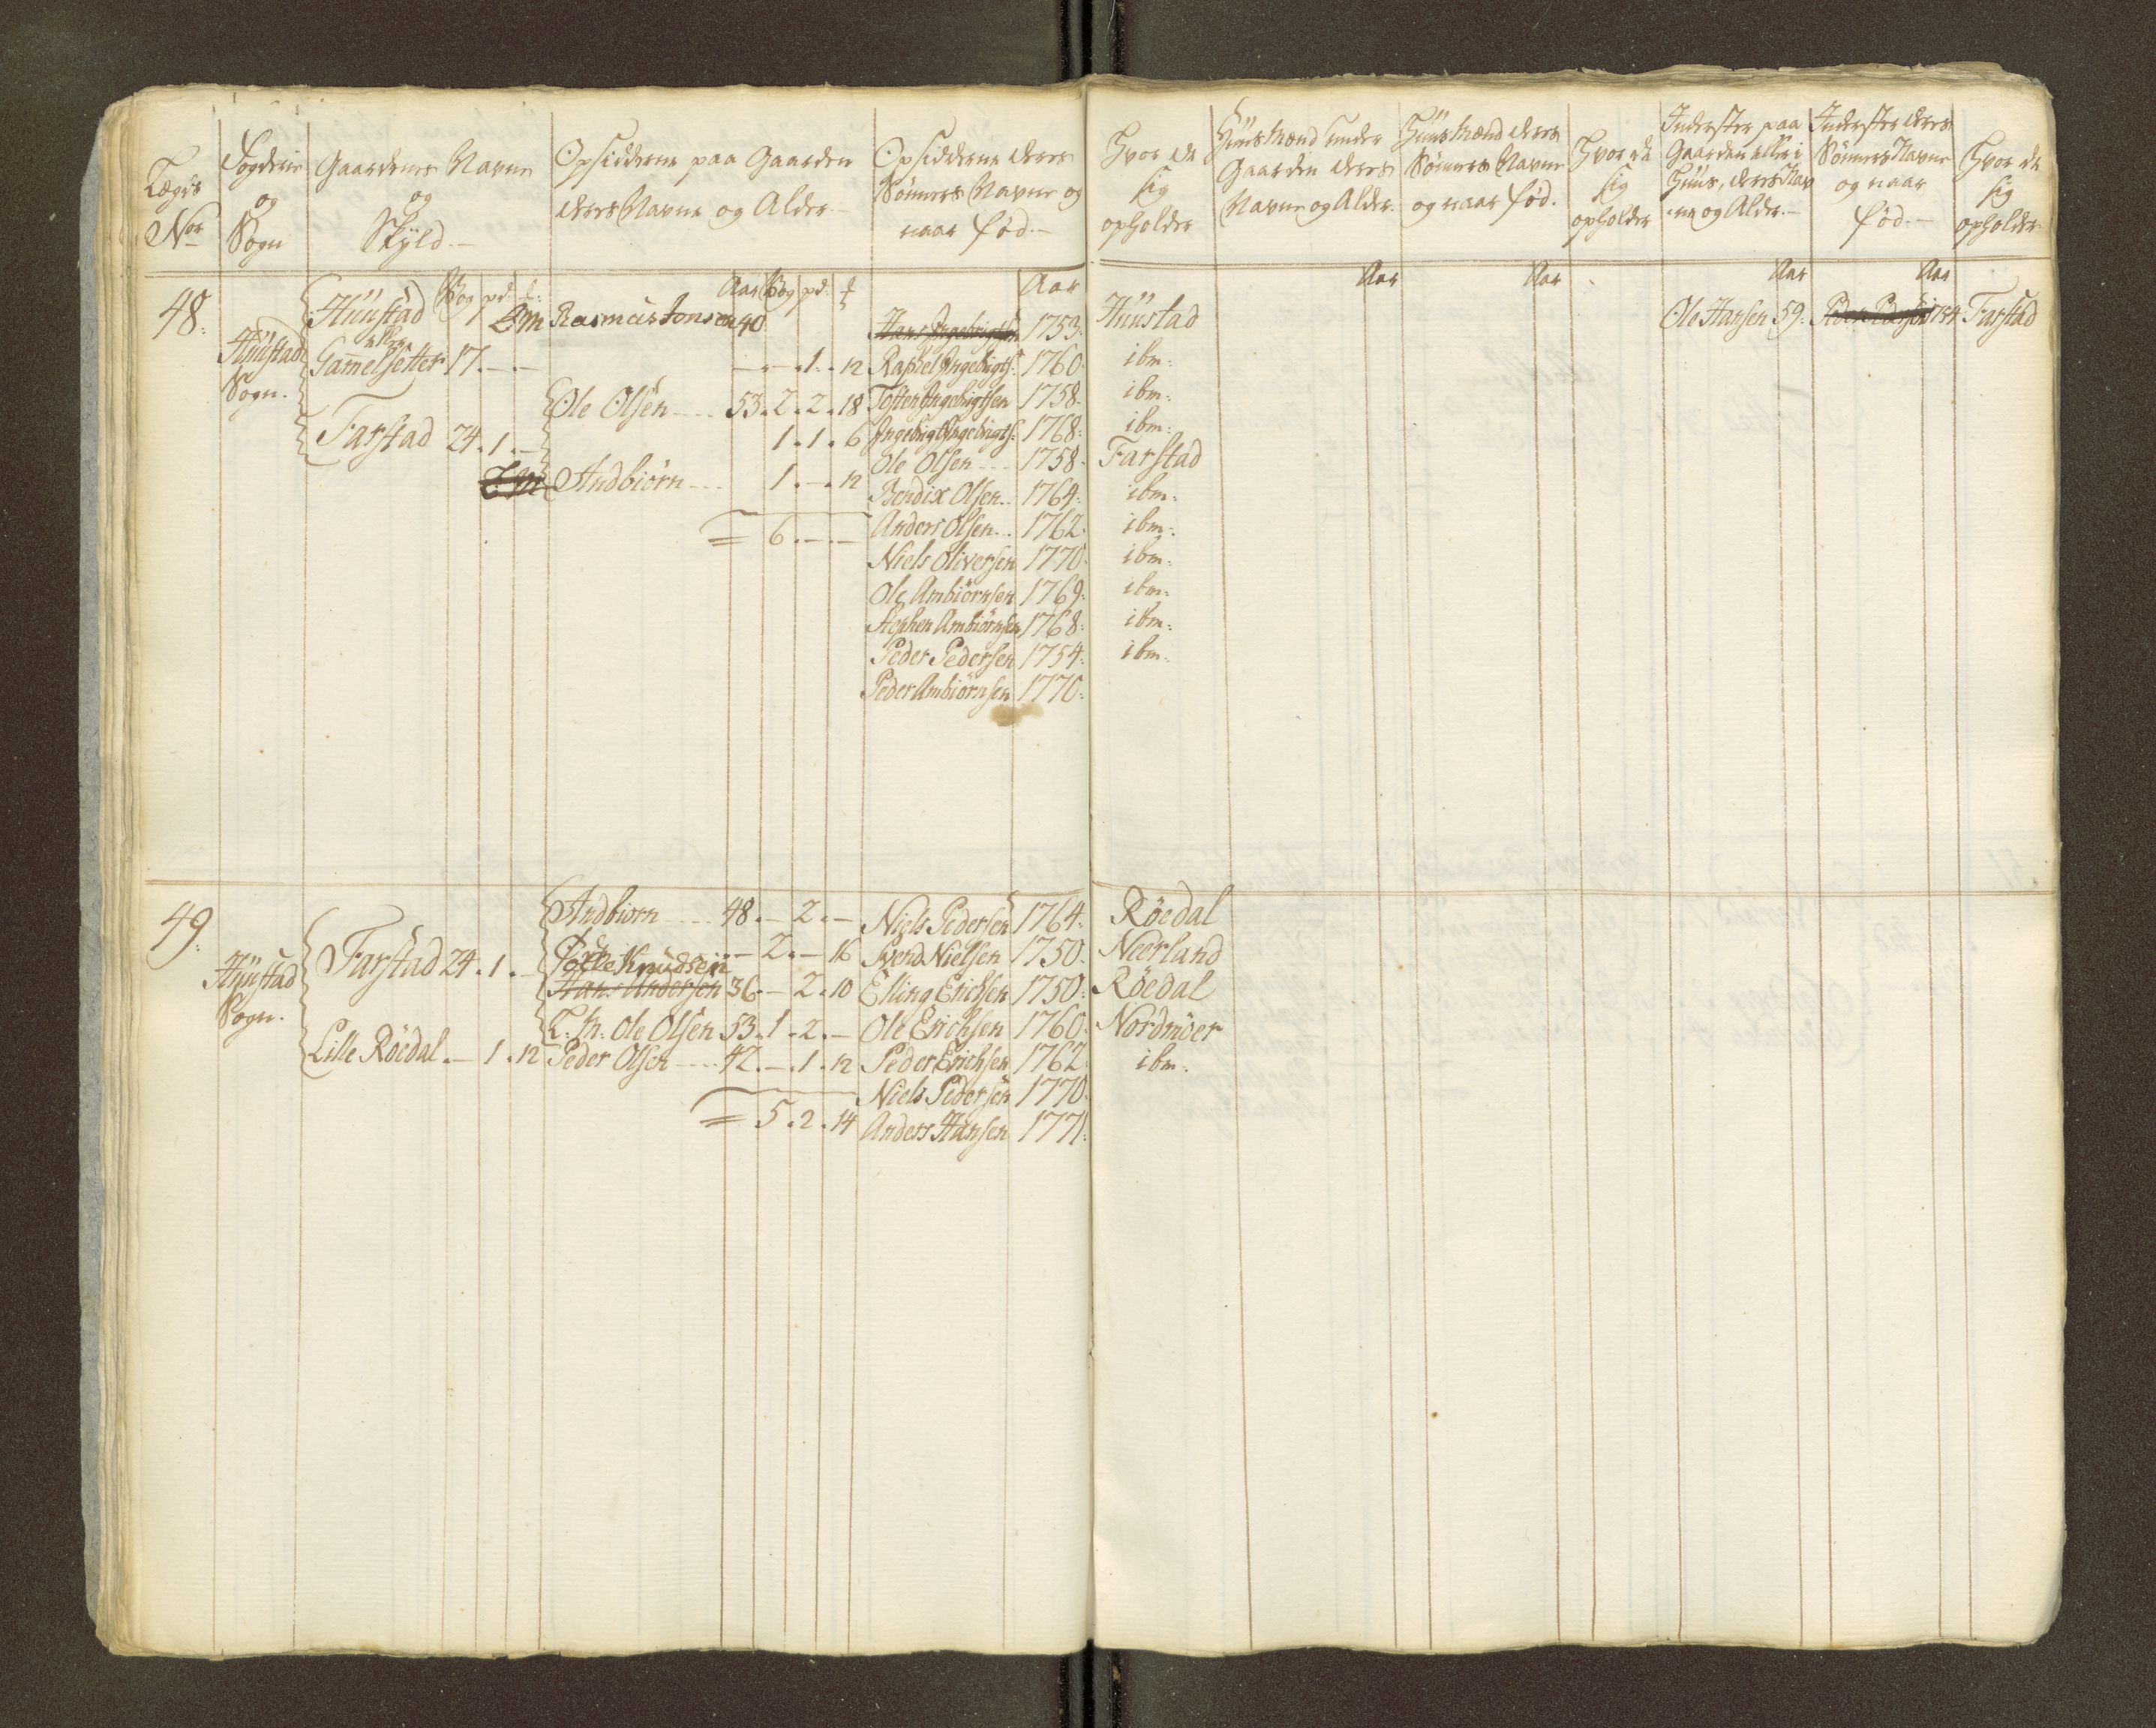 Lægds
Nor
Fogderie
og
Sogn
Gaardenes Navne
og
Skyld.-
Opsidderne paa Gaarden
deres Navne og Alder-
Opsiddernes deres
Sønners Navne og
naar fød.-
Hvor de
sig
opholder
Huusmænd under
Gaarden deres
Navne og Alder.
Huusmænd deres
Sønners Navne
og naar fød.
Hvor de
sig
opholder
Inderster paa
Gaarden eller i
Huus, deres Nav
ne og Alder.-
Inderster deres
Sønners Navne
og naar
fød.-
Hvor de
sig
opholder
48.
Hüüstad
Sogn.
Hüüstad
eller
Gamelsetter 17. - . -
Farstad 24. 1. -
Vog pd:
Aar Vog pd:
Aar
LM Rasmus Jonsen 40
Hans Ingebrigtsen 1753. Hüüstad
Aar
Aar
Aar
Aar
Ole Hansen 59. Peder Pedersen 1754 Farstad
- . - . 1. . 12 Raphel Ingebrigts: 1760. ibm:
Ole Olsen - - - 53. 2. 2. 18 Tosten Ingebrigtsen 1758. ibm:
1. 1. 6 Ingebrigt Ingebrigts: 1768: ibm:
Ole Olsen - - - 1758. Farstad
Andbiörn - - - 1. - . 12 Bendix Olsen.. 1764. ibm:
= 6. - . - Anders Olsen.. 1762. ibm:
Niels Oliversen 1770. ibm:
Ole Ambiörnsen 1769. ibm:
Stephen Ambiörnsen 1768. ibm:
Peder Pedersen 1754. ibm:
Peder Ambiörnsen 1770.
49.
Hüüstad
Sogn.
Farstad 24. 1. -
Lille Röedal. - 1. 12
Andbiorn - - - 48. - 2. - Niels Pedersen 1764. Röedal
- 2. - 16 Svend Nielsen 1750. Neerland
Tolle Knudsen
Hans Andersen 36 - 2. 10 Elling Erichsen 1750. Röedal
L. M. Ole Olsen 53. 1. 2. - Ole Erichsen 1760. Nordmöer
Peder Olsen - - - 42. - . 1. 12 Peder Erichsen 1762 ibm.
Niels Pedersen 1770.
= 5. 2. 14 Anders Hansen 1771.